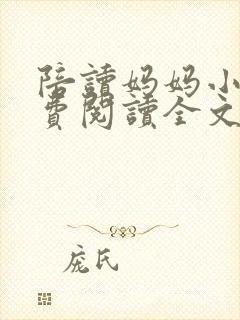 陪讀妈妈小
費閱讀全文
庞氏